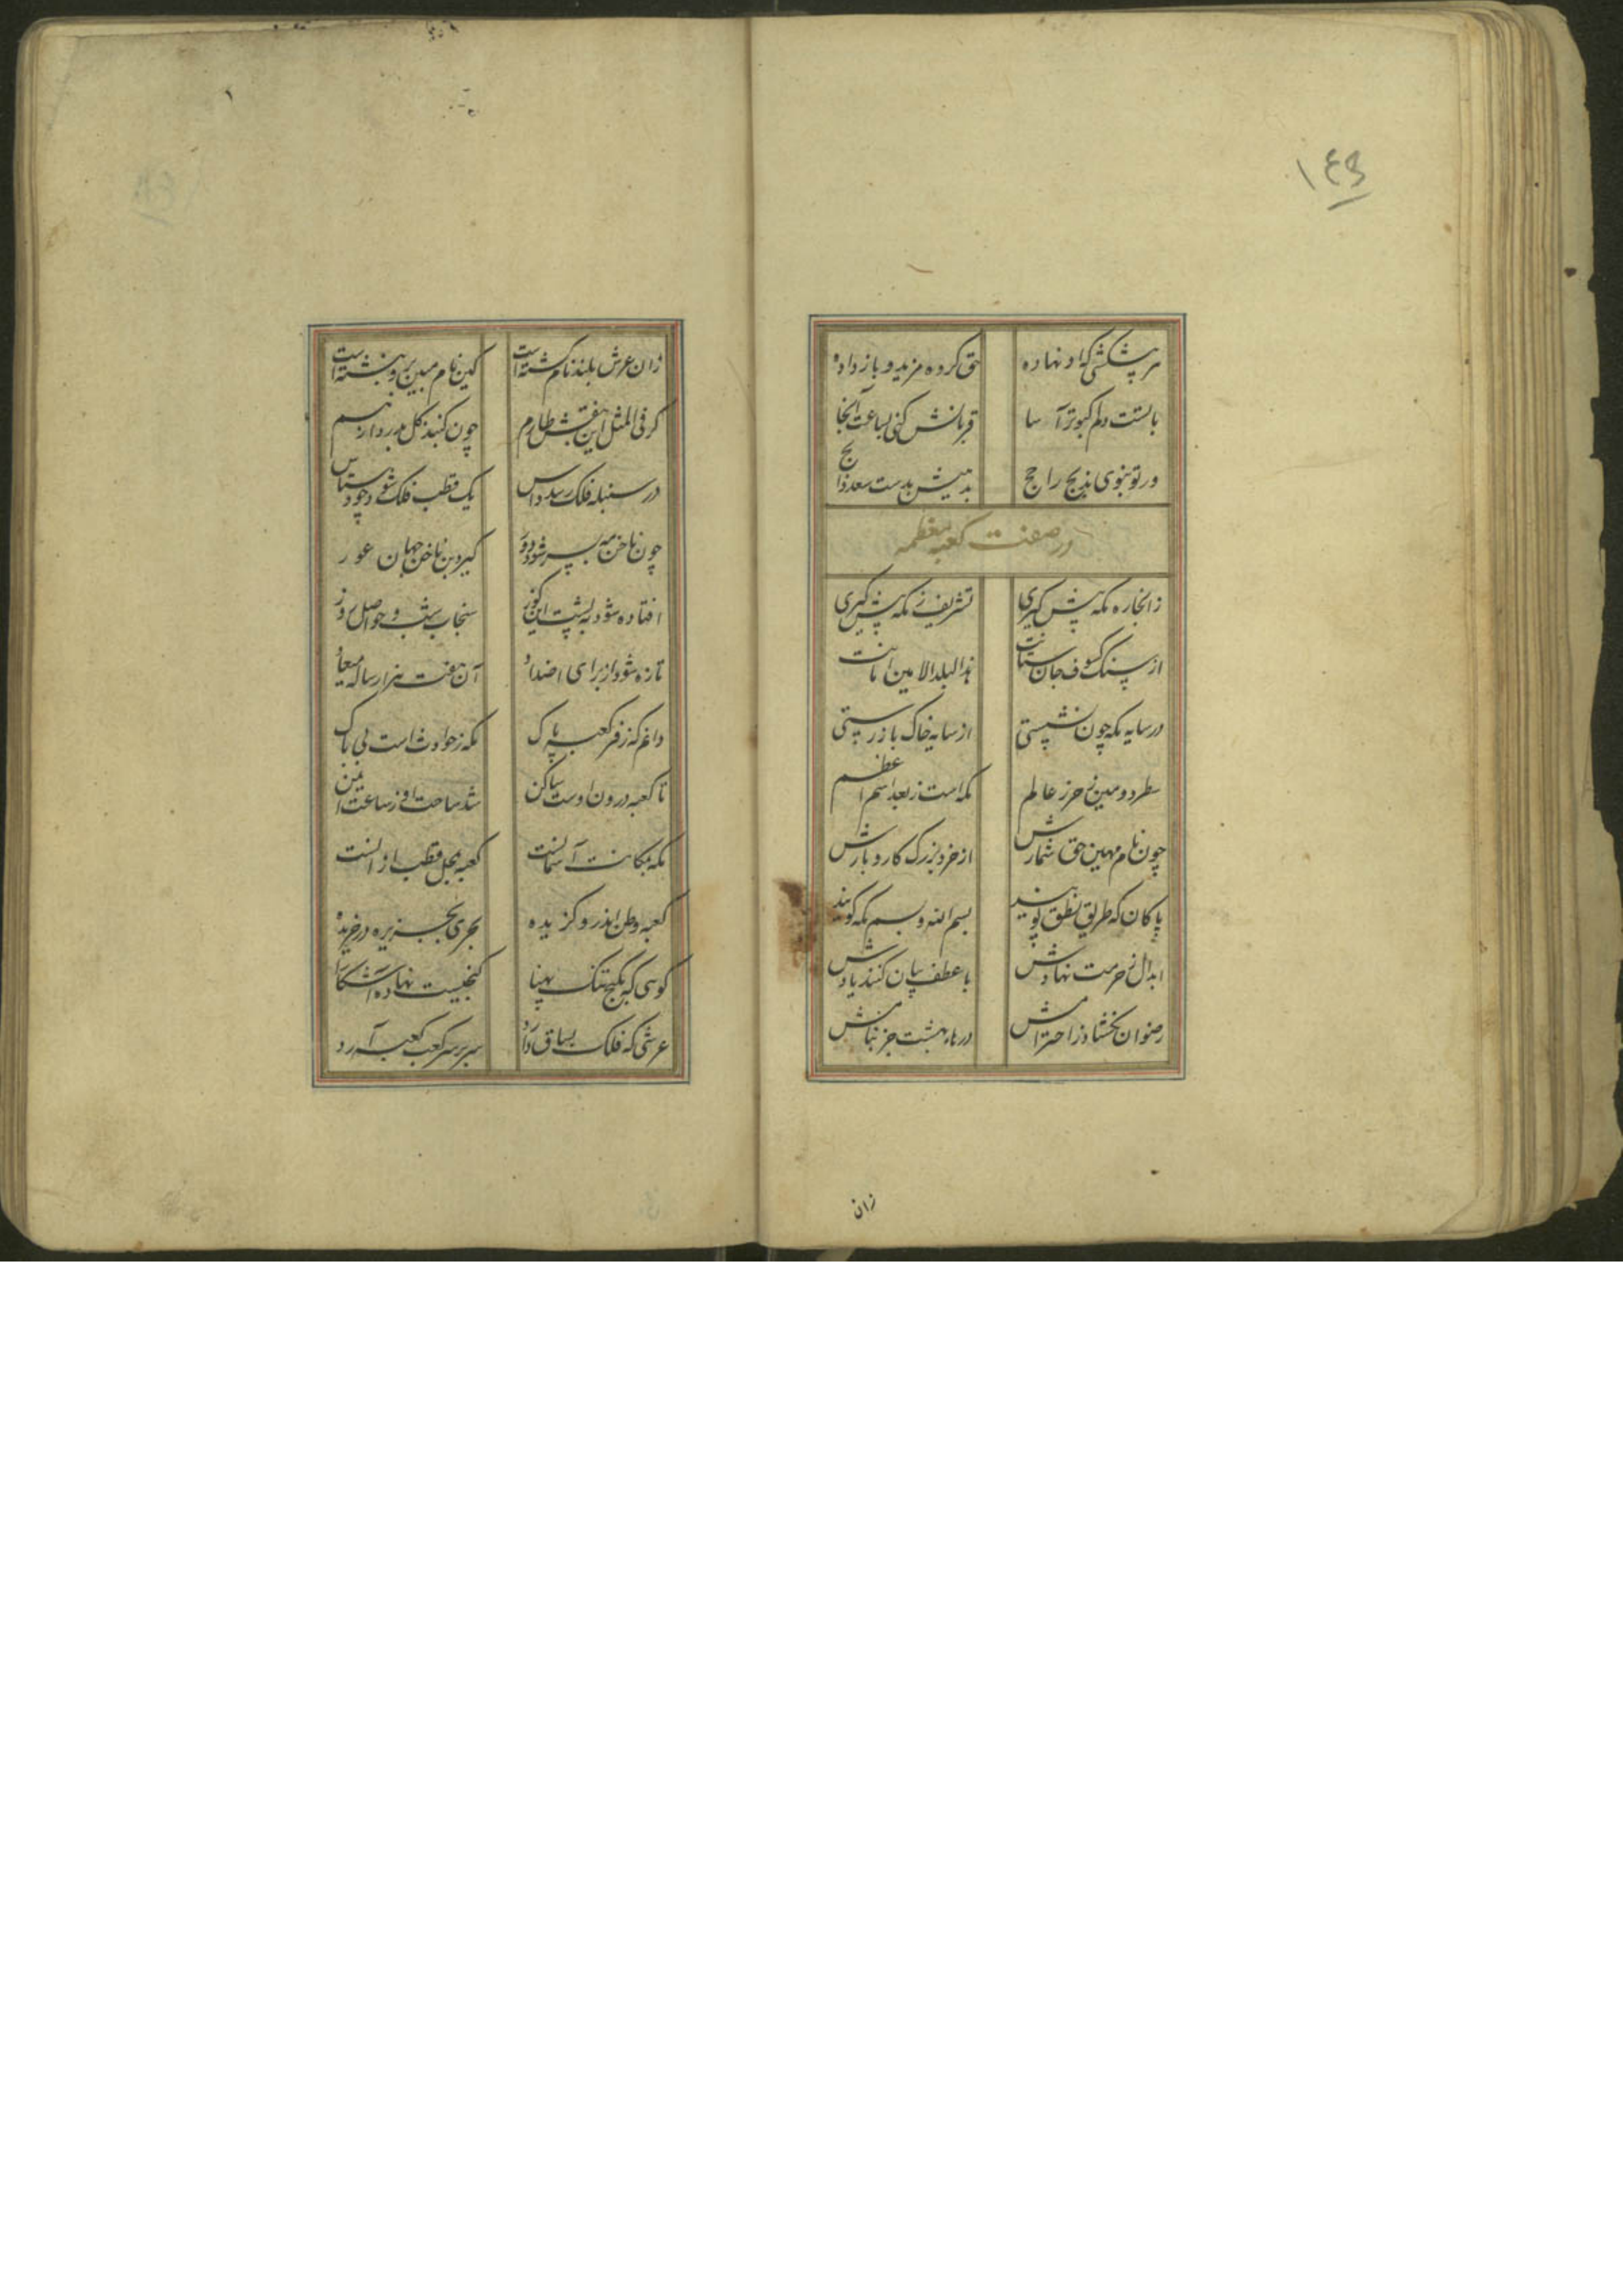 ۱۴۹
هر پیشکشی که او نهاده
حق کرده مزید و باز داده
بالست دلم کبوتر آسا
قربانش کنی بساعت آنجا
ور تو بنوی ذبیح را حج
بدست سعد ذابح
در صفت کعبه معظمه
زانجا ره مکه پیش گیری
تشریف ز مکه بیش گیری
از سنگ کسوف جان ستانت
هذا البلد الامین امانت
در سایه مکه چون نشستی
از سایه خاک باز رستی
سطر دومین ز حرز عالم
مکه است ز بعد اسم اعظم
چون نام مهین حق شمارش
از خرد و بزرگ کار و بارش
پاکان که طریق نطق پویند
بسم الله و بسم مکه گویند
ابدال ز حرمت نهادش
با عطف بیان کنند یادش
رضوان نگشاد ز احترامش
درهاء بهشت جز بنامش
زان
زان عرش بلند نام گشته است
کین نام مبین برو نبشته است
گر فی المثل این بنفش طارم
چون گنبد گل بدرد از هم
در سنبله فلک رسد داس
یک قطب فلک شود چو دستاس
چون ناخن مه بسر شود دور
گیرد بن ناخن جهان غور
افتاده شود به پشت این کوز
سنجاب شب و حواصل روز
تازه شود از برای اضداد
آن هفت هزار ساله میعاد
دانم که ز فر کعبه پاک
مکه ز حوادث است بی باک
تا کعبه درون اوست ساکن
شد ساحت او ز ساعت ایمن
مکه بمکانت آسمانست
کعبه بمحل قطب از آنست
کعبه وطن اندرو گزیده
بحری بجزیره در خزیده
کوهی که بکنج تنگ پهنا
گنجیست نهاده آشکارا
عرشی که فلک بساق دارد
سر بر سر کعب کعبه آرد